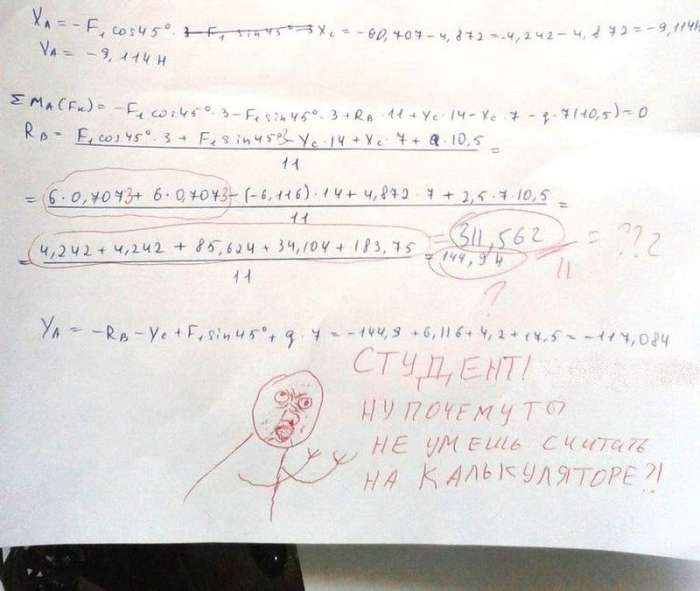 X_A = -F₁cos45°·3-F₁sin45°·3X_c = -60,707-4,872=-4,242-4,872=-9,114Н
Y_A = -9,114Н
ΣM_A(F_к) = -F₁cos45°·3-F₁sin45°·3+R_B·11+Y_c·14-X_c·7-q·7(10,5)=0
R_B = F₁cos45°·3+F₁sin45°·3-Y_c·14+X_c·7+q·10,5
11 =
= 6·0,707·3+6·0,707·3-(-6,116)·14+4,872·7+2,5·7·10,5 =
11
= 4,242+4,242+85,624+34,104+183,75 = 311,562 = ??2
11 = 144,94 11
?
Y_A = -R_B-Y_c+F₁sin45°+q·7=-144,9+6,116+4,2+17,5=-117,084
СТУДЕНТ!
НУ ПОЧЕМУ ТЫ
НЕ УМЕШЬ СЧИТАТЬ
НА КАЛЬКУЛЯТОРЕ?!